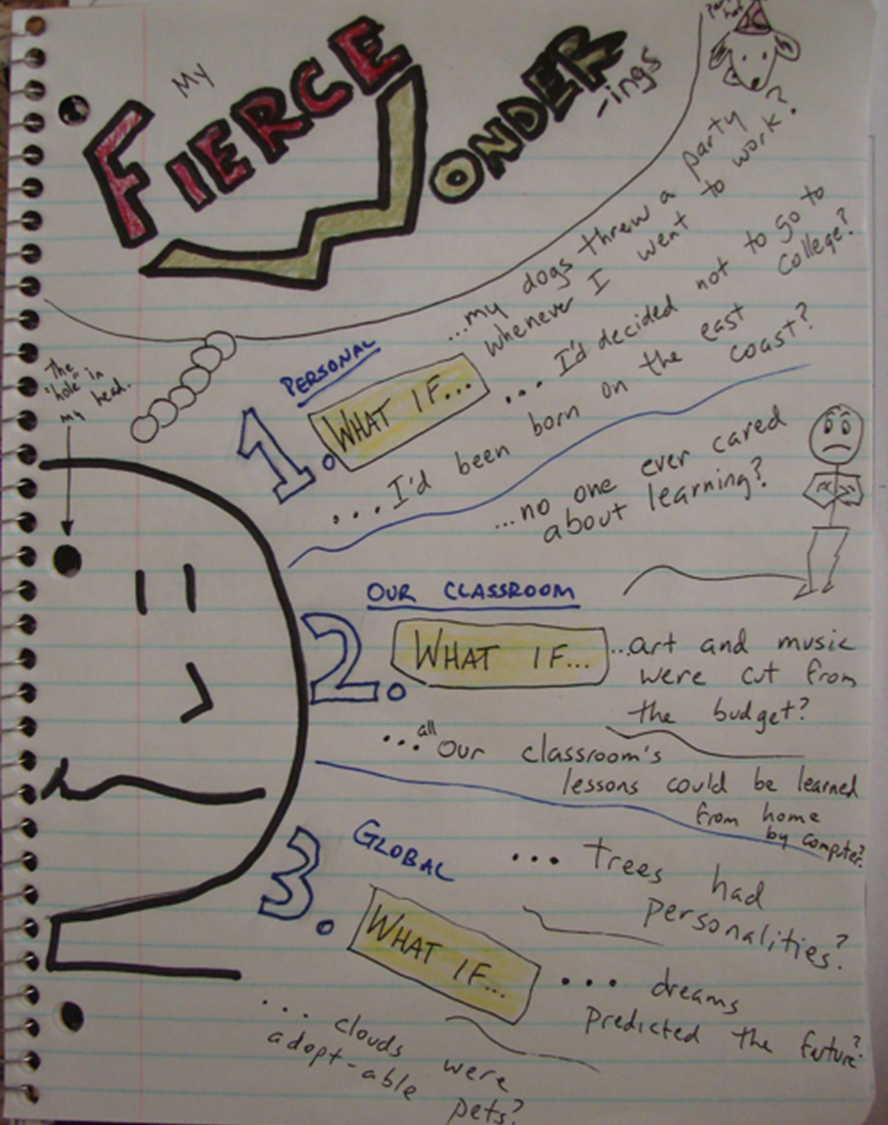 My
FIERCE
WONDER
-ings
party
hat
...my dogs threw a party
whenever I went to work?
The
"hole" in
my head.
PERSONAL
1.
WHAT IF...
... I'd decided not to go to
college?
...I'd been born on the east
coast?
...no one ever cared
about learning?
OUR CLASSROOM
2.
WHAT IF...
...art and music
were cut from
the budget?
...all our classroom's
lessons could be learned
from home
by computer?
GLOBAL
3.
WHAT IF...
... trees had
personalities?
... dreams
predicted the future?
... clouds were
adopt-able pets?